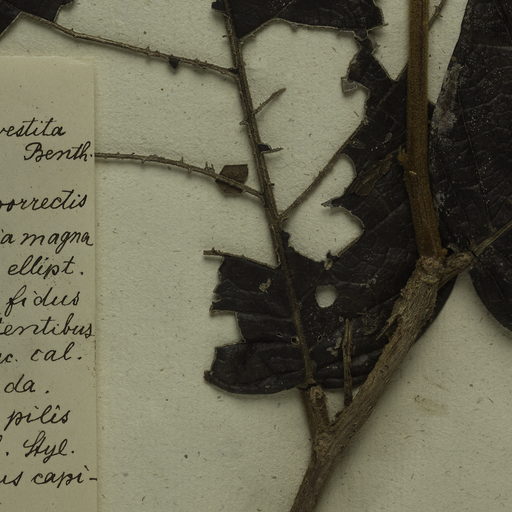 vestita
Benth.
porrectis
ia magna
ellipt.
fidus
dentibus
c. cal.
da.
pilis
. Styl.
us capi-